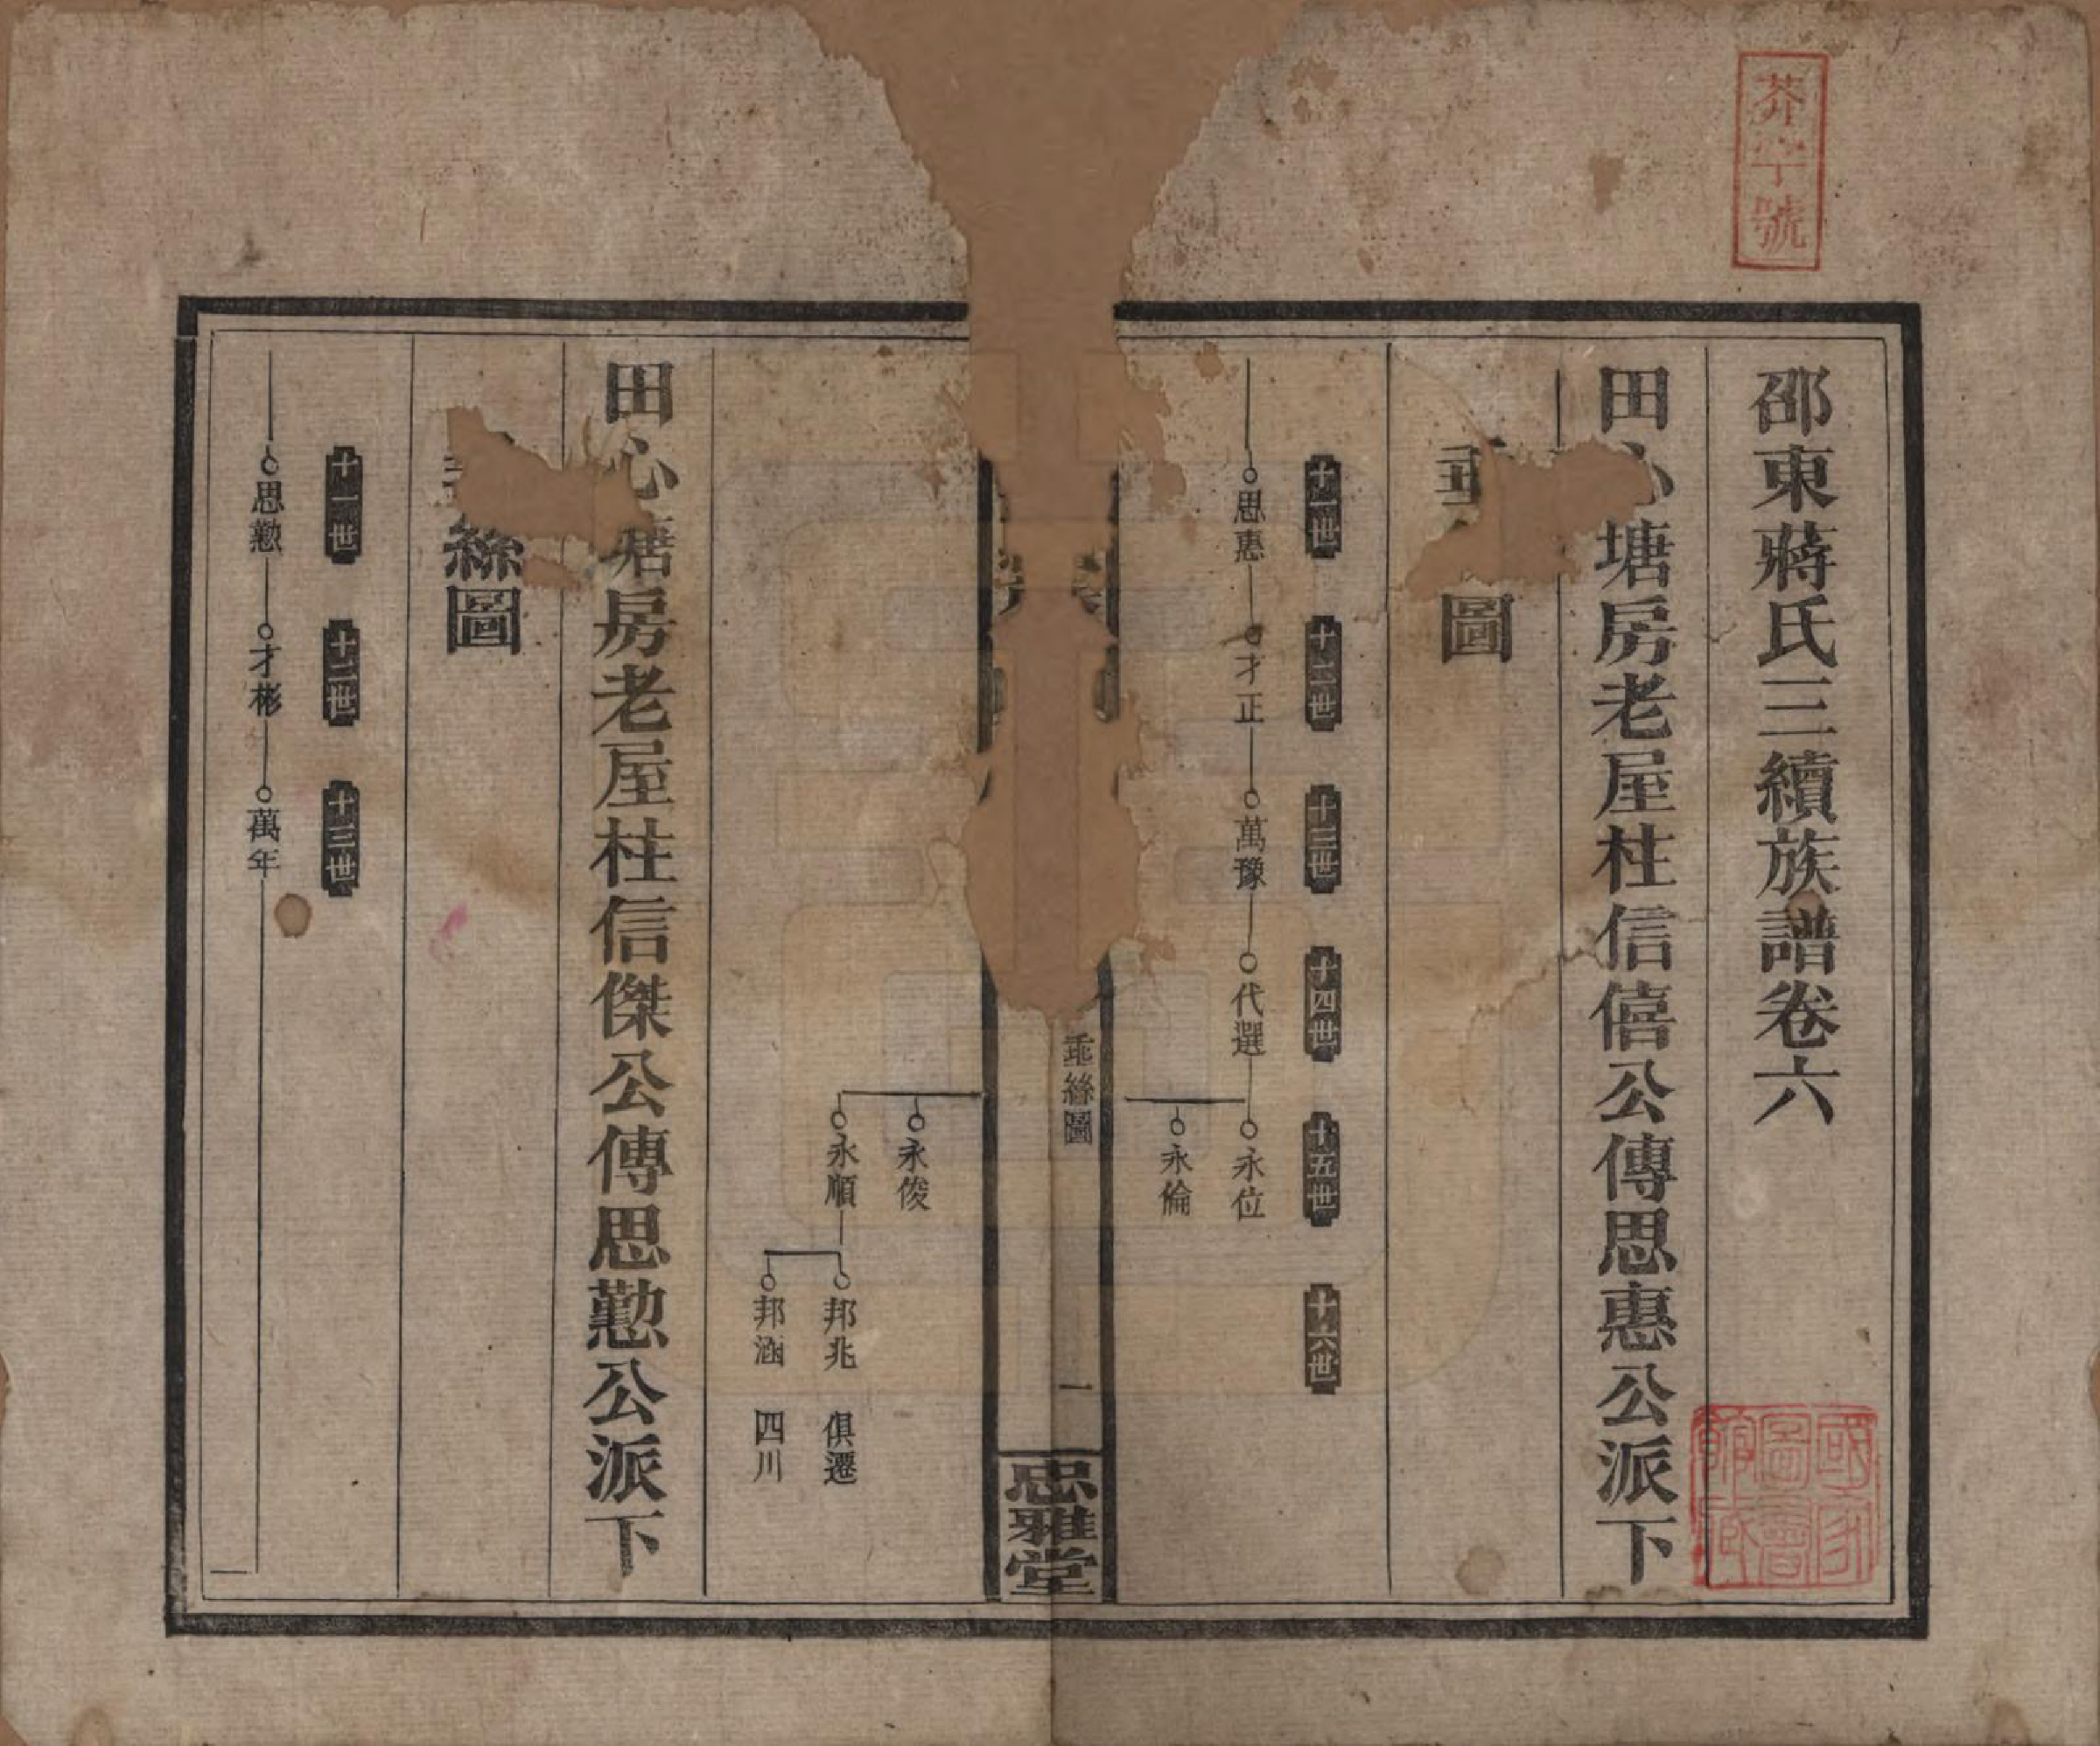 芥字號
邵東蔣氏三續族譜卷六
田心塘房老屋柱信僖公傳思惠公派下
垂絲圖
十一世 十二世 十三世 十四世 十五世 十六世
思惠 才正 萬豫 代選 永位
永倫
垂絲圖 一 思雅堂
永俊
永順 邦兆 俱遷
邦涵 四川
田心塘房老屋柱信傑公傳思懃公派下
垂絲圖
十一世 十二世 十三世
思懃 才彬 萬年